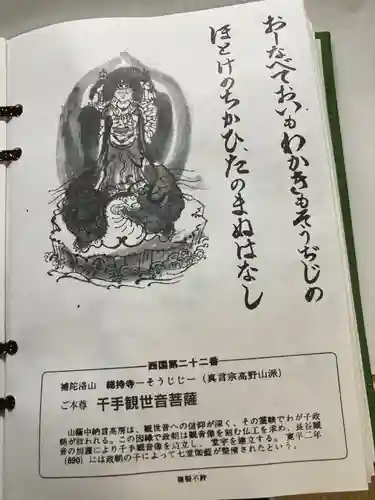 おしなべておいもわかきもそうぢじの
ほとけのちかひたのまぬはなし
西国第二十二番
補陀洛山 総持寺―そうじじ―(真言宗高野山派)
ご本尊 千手観世音菩薩
山蔭中納言高房は、観世音への信仰が深く、その霊験でわが子政
朝が救われる。この因縁で政朝は観音像を刻む仏工を求め、長谷観
音の加護により千手観音像を造立し、堂宇を建立する。寛平二年
(890)には政朝の子によって七堂伽藍が整備されたという。
複製不許